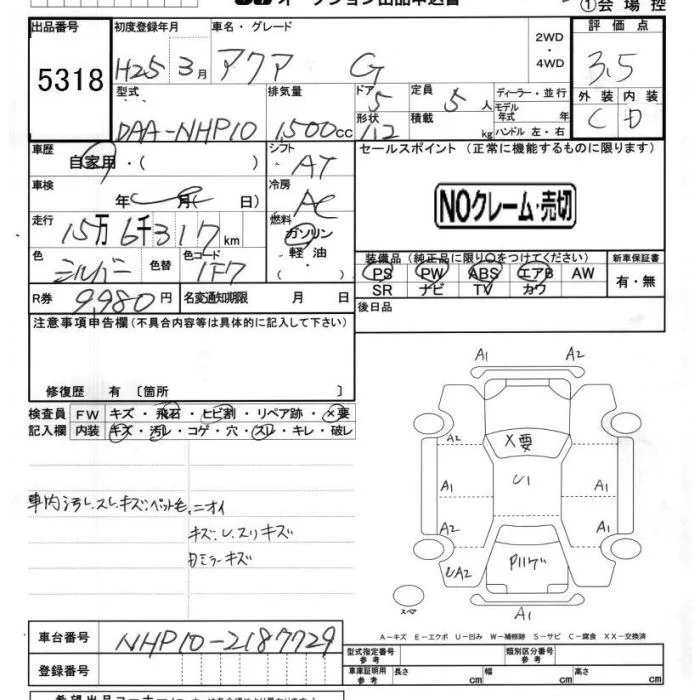 ①会 場 控
出品番号
5318
初度登録年月
H25 3月
車名・グレード
アクア G
2WD
・
4WD
評 価 点
3.5
型式
DAA-NHP10
排気量
1500cc
ドア 5
形状 112
定員 5 人
積載 kg
ディーラー・並 行
モデル年式 年
ハンドル 左・右
外 装 内 装
C D
車歴
自家用・( )
シフト
AT
セールスポイント (正常に機能するものに限ります)
車検
年 月 日
冷房
AC
NOクレーム・売切
走行
15万 6千317km
燃料
ガソリン
・
軽 油
・
( )
色
シルバー
色替
色コード
1F7
装備品 (純正品に限り○をつけてください)
新車保証書
PS PW ABS エアB AW
SR ナビ TV カワ
有・無
R券 9,980円
名変通知期限 月 日
後日品
注意事項申告欄(不具合内容等は具体的に記入して下さい)
修復歴 有 〔箇所 〕
検査員 FW キズ・飛石・ヒビ割・リペア跡・×要
記入欄 内装 キズ・汚レ・コゲ・穴・スレ・キレ・破レ
車内汚レ、スレ、キズ、ペット毛、ニオイ
キズ、レ、スリキズ
ミラーキズ
A1 A2
A2 X要
A1 U1 A1
A2 A1
UA2
スペア
A1
A-キズ E-エクボ U-凹み W-補修跡 S-サビ C-腐食 XX-交換済
車台番号
NHP10-2187729
登録番号
型式指定番号 参 考
類別区分番号 参 考
車庫証明用 参 考
長さ cm 幅 cm 高さ cm